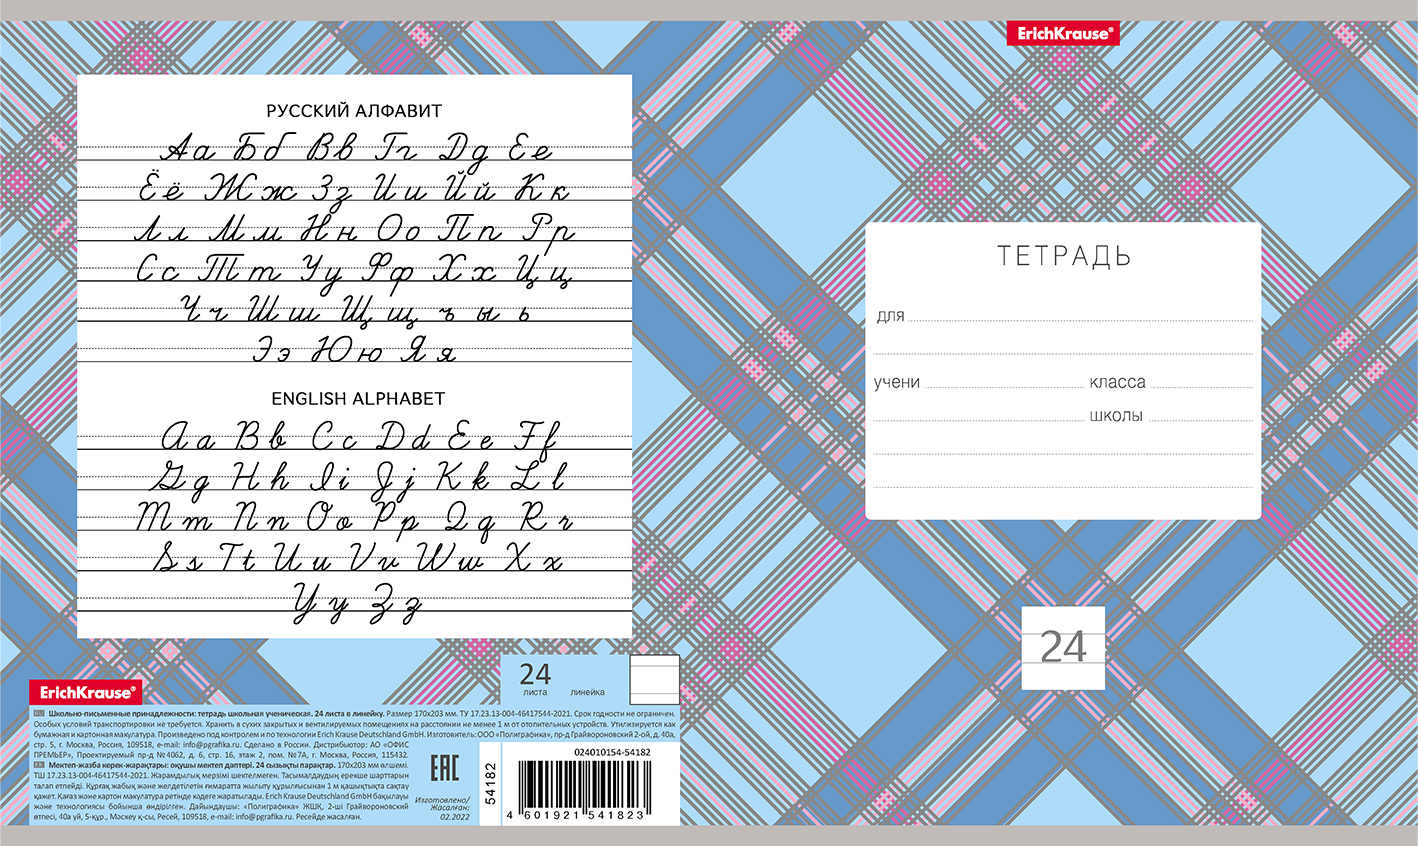 РУССКИЙ АЛФАВИТ
Аа Бб Вв Гг Дд Ее
Ёё Жж Зз Ии Йй Кк
Лл Мм Нн Оо Пп Рр
Сс Тт Уу Фф Хх Цц
Чч Шш Щщ ъ ы ь
Ээ Юю Яя
ENGLISH ALPHABET
Aa Bb Cc Dd Ee Ff
Gg Hh Ii Jj Kk Ll
Mm Nn Oo Pp Qq Rr
Ss Tt Uu Vv Ww Xx
Yy Zz
24
листа линейка
ErichKrause®
Школьно-письменные принадлежности: тетрадь школьная ученическая. 24 листа в линейку. Размер 170х203 мм. ТУ 17.23.13-004-46417544-2021. Срок годности не ограничен.
Особых условий транспортировки не требуется. Хранить в сухих закрытых и вентилируемых помещениях на расстоянии не менее 1 м от отопительных устройств. Утилизируется как
бумажная и картонная макулатура. Произведено под контролем и по технологии Erich Krause Deutschland GmbH. Изготовитель: ООО «Полиграфика», пр-д Грайвороновский 2-ой, д. 40а,
стр. 5, г. Москва, Россия, 109518, e-mail: info@pgrafika.ru. Сделано в России. Дистрибьютор: АО «ОФИС
ПРЕМЬЕР», Проектируемый пр-д №4062, д. 6, стр. 16, этаж 2, пом. №7А, г. Москва, Россия, 115432.
Мектеп-жазба керек-жарақтары: оқушы мектеп дәптері. 24 сызықты парақтар. 170х203 мм өлшемі.
ТШ 17.23.13-004-46417544-2021. Жарамдылық мерзімі шектелмеген. Тасымалдаудың ерекше шарттарын
талап етпейді. Құрғақ жабық және желдетілетін ғимаратта жылыту құрылғысынан 1 м қашықтықта сақтау
қажет. Қағаз және картон макулатура ретінде кәдеге жаратылады. Erich Krause Deutschland GmbH бақылауы
және технологиясы бойынша өндірілген. Дайындаушы: «Полиграфика» ЖШҚ, 2-ші Грайвороновский
өтпесі, 40а үй, 5-құр., Мәскеу қ-сы, Ресей, 109518, e-mail: info@pgrafika.ru. Ресейде жасалған.
EAC
Изготовлено/
Жасалған:
02.2022
54182
024010154-54182
4 601921 541823
ErichKrause®
ТЕТРАДЬ
для
учени класса
школы
24